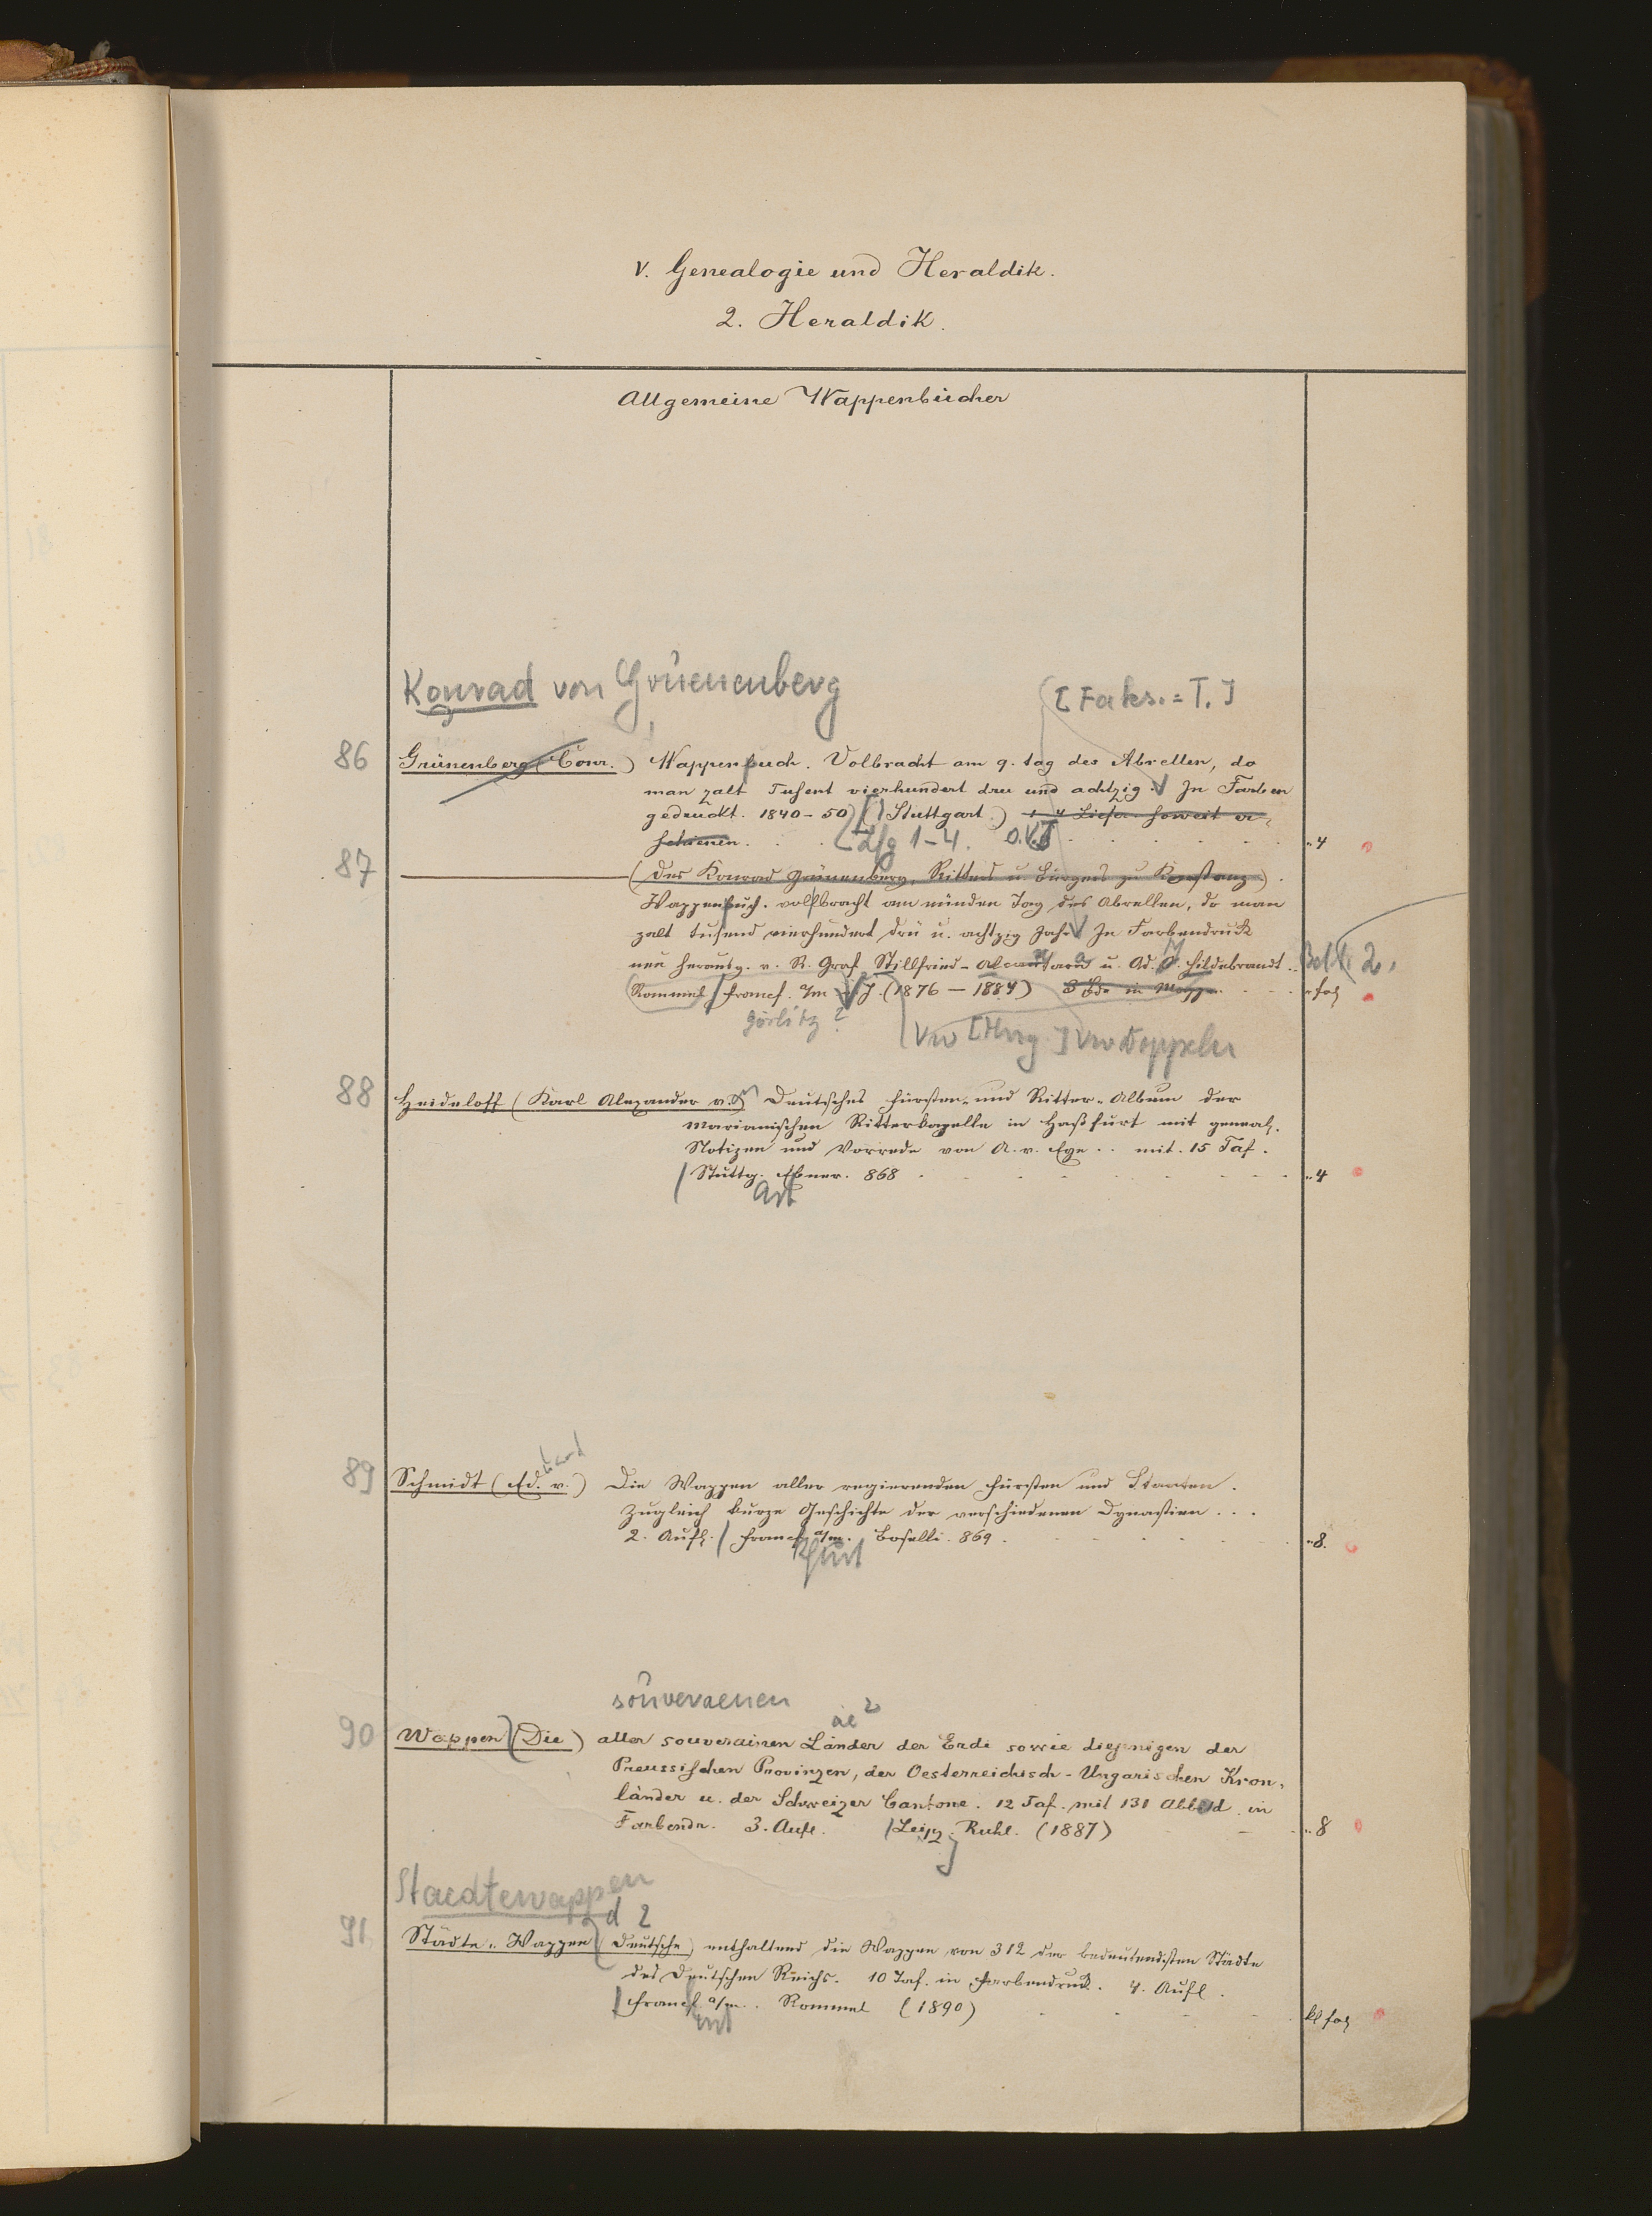 V. Genealogie und Heraldik.
2. Heraldik.
Allgemeine Wappenbücher
Konrad von Grünenberg
[Faks. = T.]
86 Grünenberg (Conr.) Wappenbuch. Volbracht am 9. tag des Abrellen, do
man zalt Tusent vierhundert dru und achtzig. In Farben
gedruckt. 1840-50 (Stuttgart.) 1-4 Liefr. soweit er-
schienen. Lfg 1-4. 4
87 (Des Konrad Grünenberg, Ritters u. Bürgers zu Konstanz).
Wappenbuch. volbracht am nünden Tag des Abrellen, do man
zalt tusend vierhundert drü u. achtzig Jahr. In Farbendruck
neu herausg. v. R. Graf Stillfried-Alcantara u. Ad. M. Hildebrandt. 2.
Rommel Francf. a/m J. (1876-1884) 3 Bde in Mappe fol
Görlitz ? Vw [Hrsg.] Vw Koppeln
88 Heideloff (Karl Alexander v.) Deutsches Fürsten- und Ritter-Album der
Marianischen Ritterkapelle in Haßfurt mit geneal.
Notizen und Vorrede von A. v. Eye .. mit. 15 Taf.
Stuttg. Ebner. 868 4
art
89 Schmidt (Ed. v.) Die Wappen aller regierenden Fürsten und Staaten.
Zugleich kurze Geschichte der verschiedenen Dynastien...
2. Aufl. Francf a/m. Boselli. 869. 8.
furt
souveraenen
ae 2
90 Wappen (Die) aller souverainen Länder der Erde sowie diejenigen der
Preussischen Provinzen, der Oesterreichisch-Ungarischen Kron-
länder u. der Schweizer Cantone. 12 Taf. mit 131 Abbild. in
Farbendr. 3. Aufl. Leipz. Ruhl. (1887) 8
Staedtewappen
d 2
91 Städte-Wappen (Deutsche) enthaltend die Wappen von 312 der bedeutendsten Städte
des Deutschen Reichs. 10 Taf. in Farbendruck. 4. Aufl.
Francf. a/m. Rommel (1890) kl fol
urt